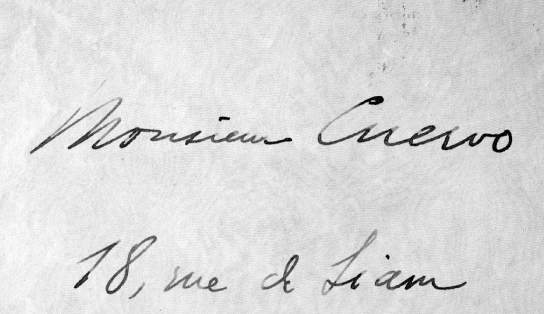 Monsieur Cuervo
18, rue de Siam